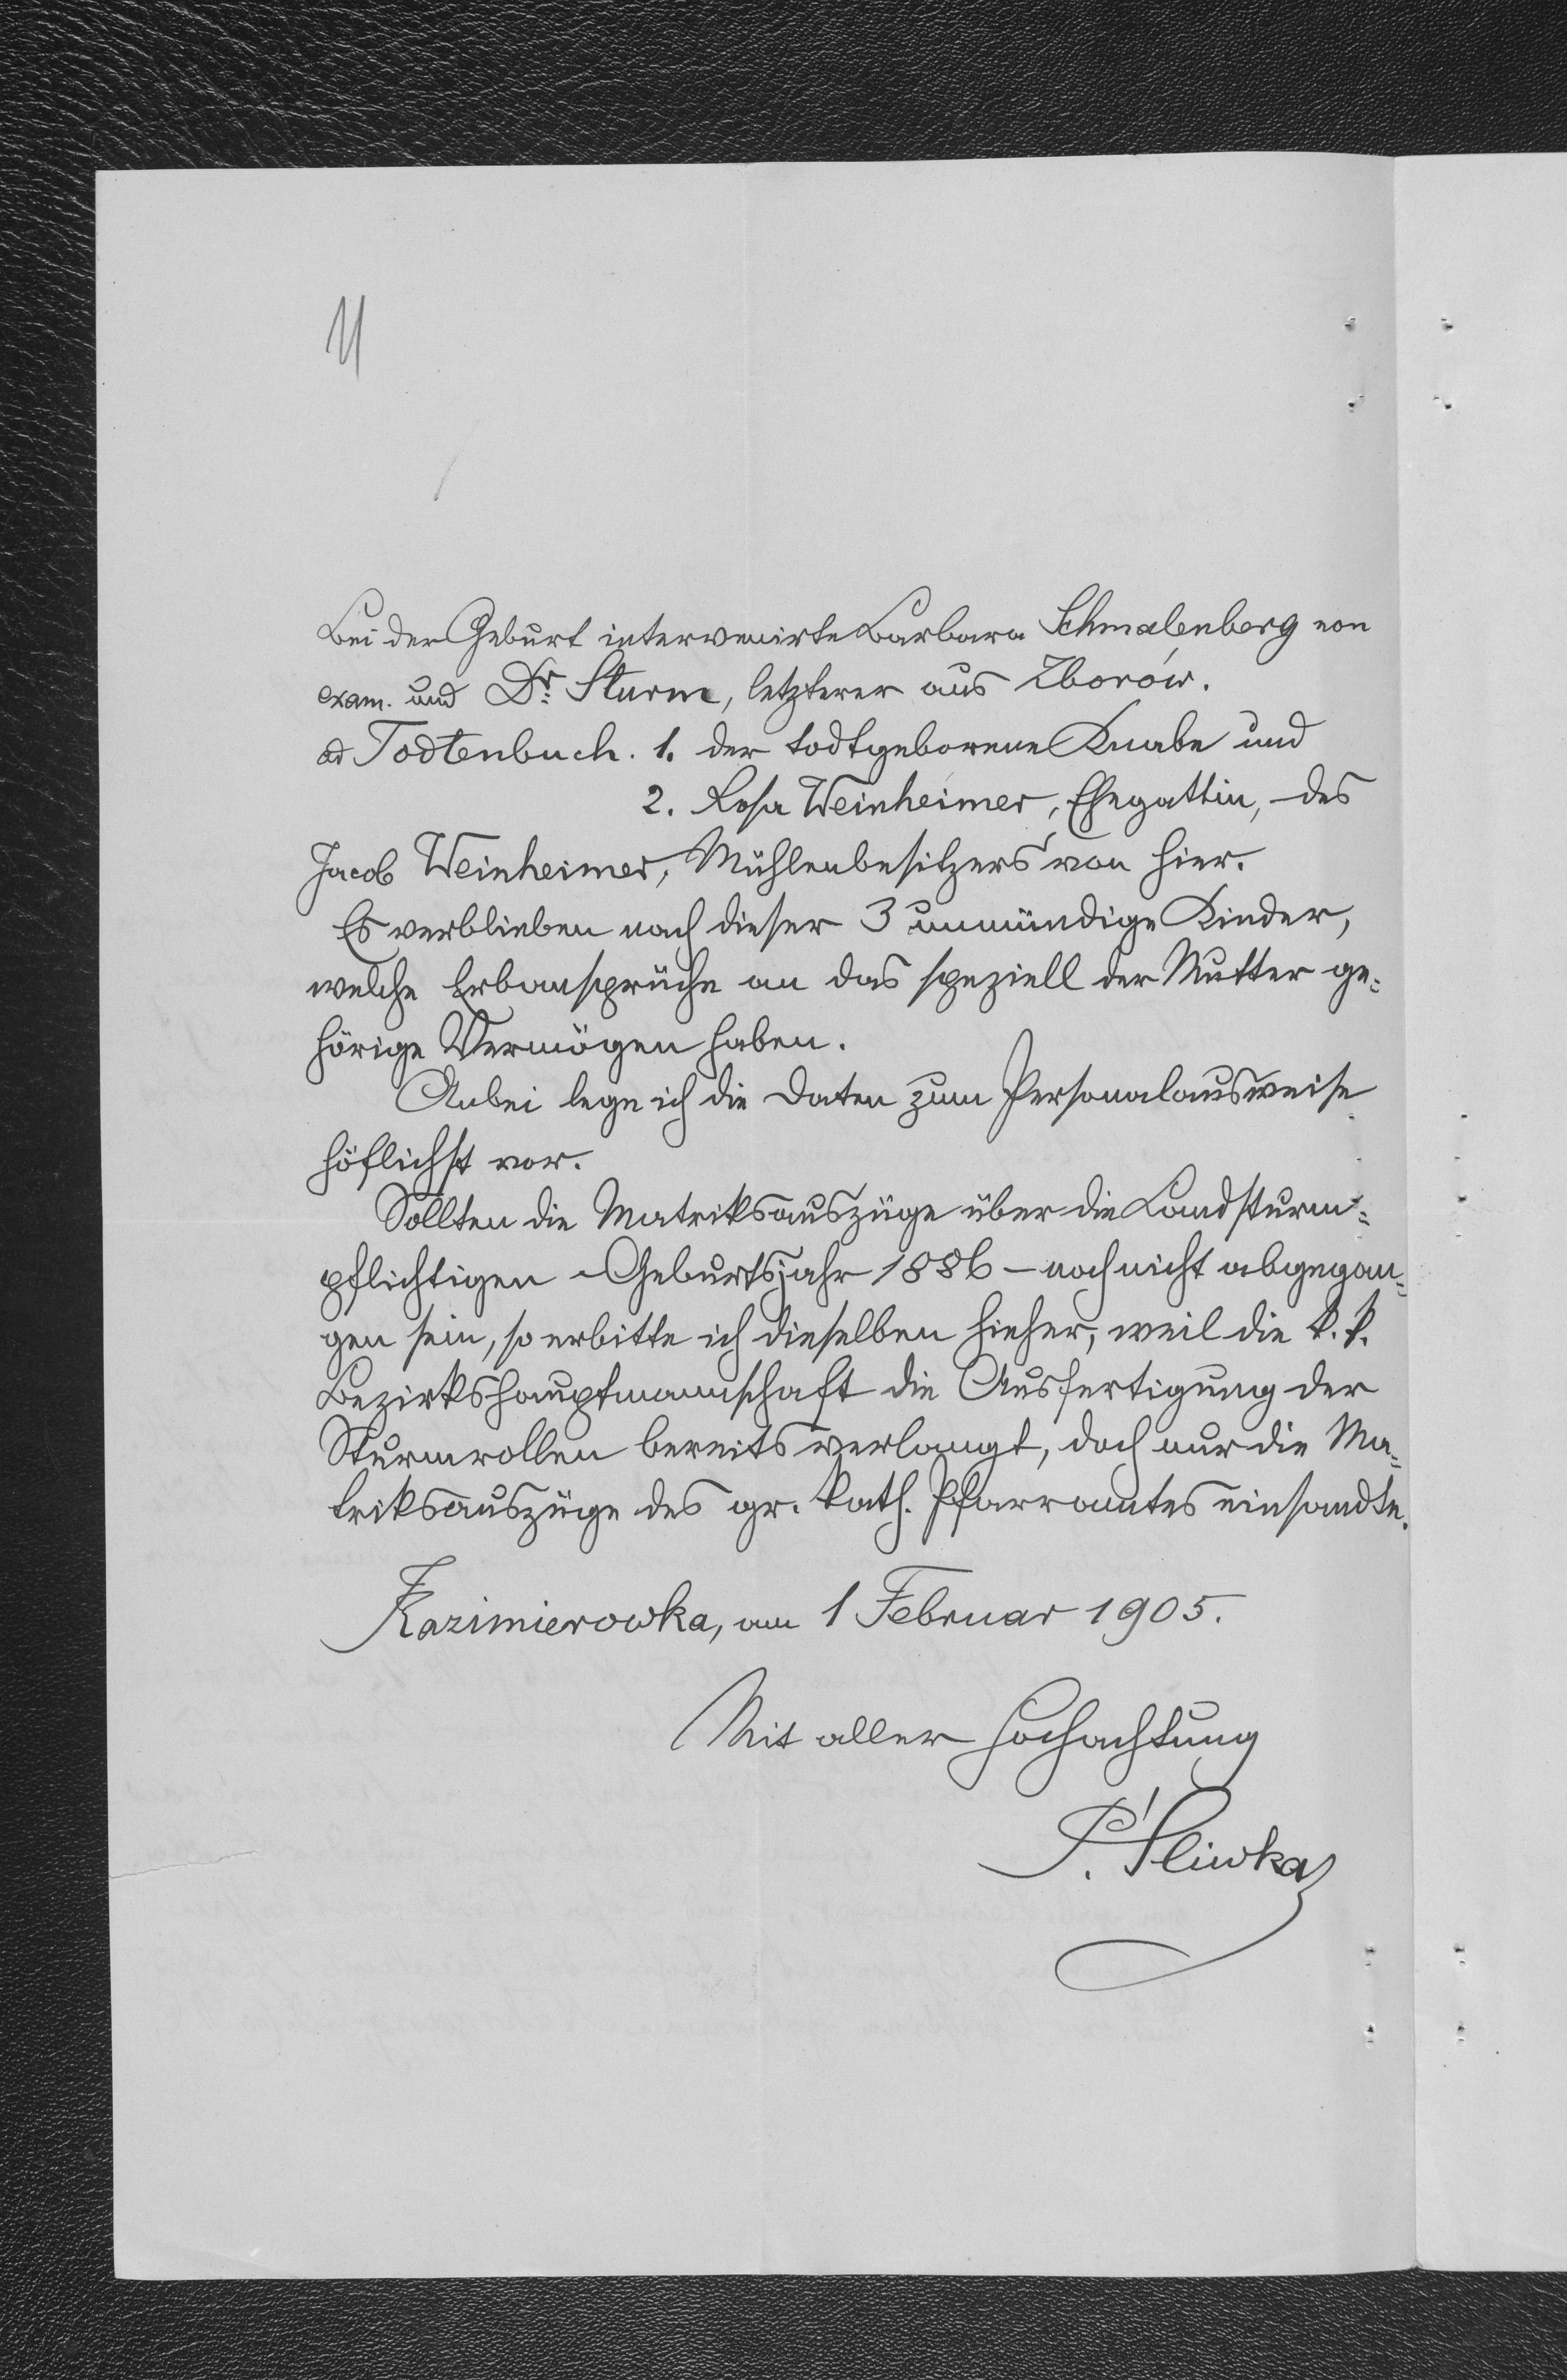 Bei der Geburt intervenirte Barbara Schmalenberg non
exam. und Dr. Sturm, letzterer aus Zborów.
ad Todtenbuch. 1. der todtgeborene Knabe und
2. Rosa Weinheimer, Ehegattin, des
Jacob Weinheimer, Mühlenbesitzers von hier.
Es verblieben nach dieser 3 unmündige Kinder,
welche Erbansprüche an das speziell der Mutter ge=
hörige Vermögen haben.
Anbei lege ich die Daten zum Personalausweise
höflichst vor.
Sollten die Matriksauszüge über die Landsturm=
pflichtigen - Geburtsjahr 1886 - noch nicht abgegan=
gen sein, so erbitte ich dieselben hieher, weil die k. k.
Bezirkshauptmannschaft die Ausfertigung der
Sturmrollen bereits verlangt, doch nur die Ma=
triksauszüge des gr. kath. Pfarramtes einsandte.
Kazimierowka, am 1 Februar 1905.
Mit aller Hochachtung
P. Śliwka